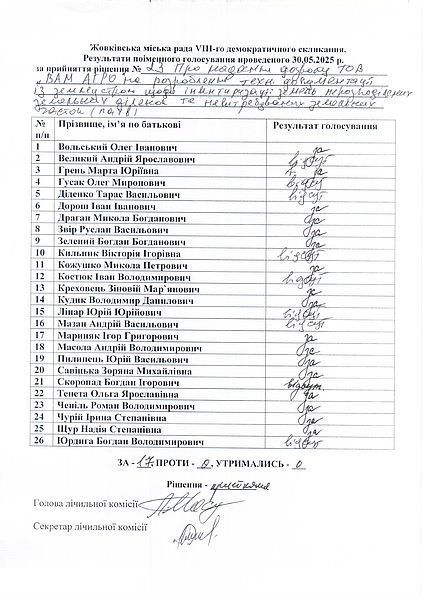 Жовківська міська рада VIII-го демократичного скликання.
Результати поіменного голосування проведеного 30.05.2025 р.
за прийняття рішення № 23 Про надання дозволу ТОВ
„ВАМ АГРО" на розроблення техн. документації
із землеустрою щодо інвентаризації земель нерозподілених
земельних ділянок та невитребуваних земельних
часток (паїв)
№ п/п Прізвище, ім’я по батькові Результат голосування
1 Вольський Олег Іванович за
2 Великий Андрій Ярославович відсут
3 Грень Марта Юріївна за
4 Гусак Олег Миронович відсут
5 Діденко Тарас Васильович відсут
6 Дорош Іван Іванович за
7 Драган Микола Богданович за
8 Звір Руслан Васильович за
9 Зелений Богдан Богданович за
10 Кильник Вікторія Ігорівна відсут
11 Кожушко Микола Петрович за
12 Костюк Іван Володимирович відсут
13 Креховець Зіновій Мар`янович за
14 Кудик Володимир Данилович за
15 Ліпар Юрій Юрійович відсут
16 Мазан Андрій Васильович відсут
17 Мариняк Ігор Григорович за
18 Масола Андрій Володимирович за
19 Пилипець Юрій Васильович за
20 Савіцька Зоряна Михайлівна за
21 Скоропад Богдан Ігорович відсут.
22 Тенета Ольга Ярославівна за
23 Чепіль Роман Володимирович за
24 Чурій Ірина Степанівна за
25 Щур Надія Степанівна за
26 Юрдига Богдан Володимирович відсут
ЗА - 17 ПРОТИ - 0, УТРИМАЛИСЬ - 0
Рішення - прийняте
Голова лічильної комісії
Секретар лічильної комісії